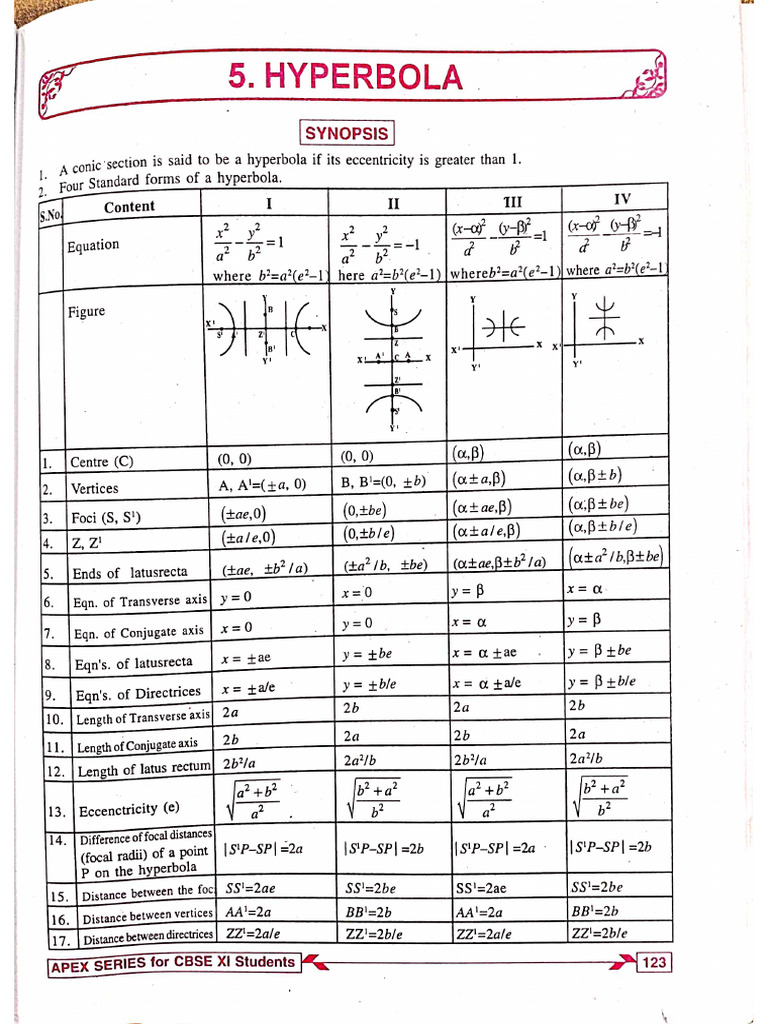 5. HYPERBOLA
SYNOPSIS
1. A conic section is said to be a hyperbola if its eccentricity is greater than 1.
2. Four Standard forms of a hyperbola.
S.No. Content I II III IV
Equation x²/a² − y²/b² = 1 x²/a² − y²/b² = −1 (x−α)²/a² − (y−β)²/b² = 1 (x−α)²/a² − (y−β)²/b² = −1
where b²=a²(e²−1) here a²=b²(e²−1) where b²=a²(e²−1) where a²=b²(e²−1)
Figure
1. Centre (C) (0, 0) (0, 0) (α,β) (α,β)
2. Vertices A, A¹=(±a, 0) B, B¹=(0, ±b) (α±a,β) (α,β±b)
3. Foci (S, S¹) (±ae,0) (0,±be) (α±ae,β) (α,β±be)
4. Z, Z¹ (±a/e,0) (0,±b/e) (α±a/e,β) (α,β±b/e)
5. Ends of latusrecta (±ae, ±b²/a) (±a²/b, ±be) (α±ae,β±b²/a) (α±a²/b,β±be)
6. Eqn. of Transverse axis y = 0 x = 0 y = β x = α
7. Eqn. of Conjugate axis x = 0 y = 0 x = α y = β
8. Eqn's. of latusrecta x = ±ae y = ±be x = α ±ae y = β ±be
9. Eqn's. of Directrices x = ±a/e y = ±b/e x = α ±a/e y = β ±b/e
10. Length of Transverse axis 2a 2b 2a 2b
11. Length of Conjugate axis 2b 2a 2b 2a
12. Length of latus rectum 2b²/a 2a²/b 2b²/a 2a²/b
13. Eccenctricity (e) √((a²+b²)/a²) √((b²+a²)/b²) √((a²+b²)/a²) √((b²+a²)/b²)
14. Difference of focal distances
(focal radii) of a point |S¹P−SP|=2a |S¹P−SP|=2b |S¹P−SP|=2a |S¹P−SP|=2b
P on the hyperbola
15. Distance between the foc SS¹=2ae SS¹=2be SS¹=2ae SS¹=2be
16. Distance between vertices AA¹=2a BB¹=2b AA¹=2a BB¹=2b
17. Distance between directrices ZZ¹=2a/e ZZ¹=2b/e ZZ¹=2a/e ZZ¹=2b/e
APEX SERIES for CBSE XI Students 123